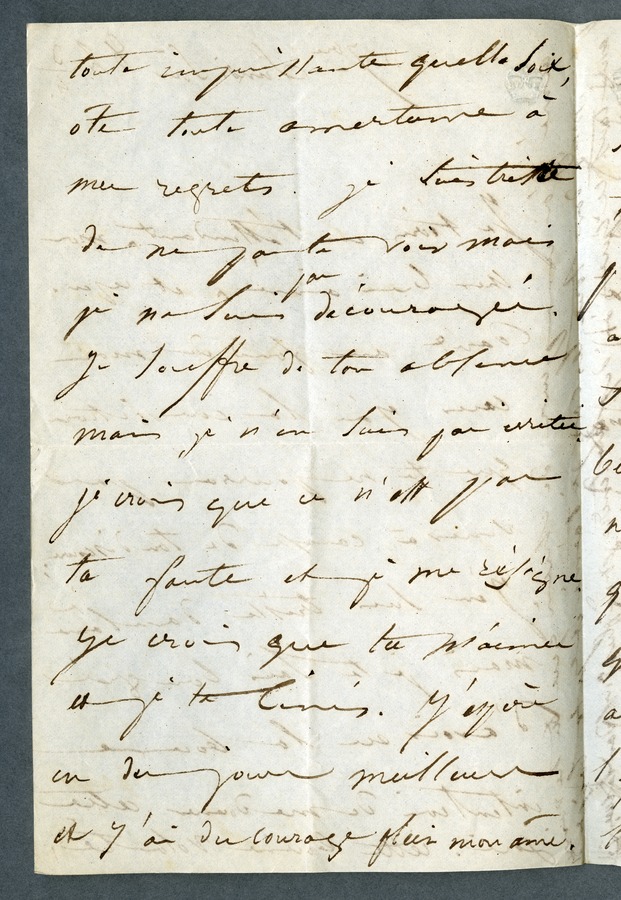 toute impuissante quelle soit,
ote toute amertume à
mes regrets. je suis triste
de ne pas te voir mais
je ne suis pas découragée.
je souffre de ton absence
mais je n'en suis pas irritée
je crois que ce n'est pas
ta faute et je me résigne
je crois que tu m'aimes
et je te bénis. J'espère
en des jours meilleurs
et j'ai du courage plein mon âme.